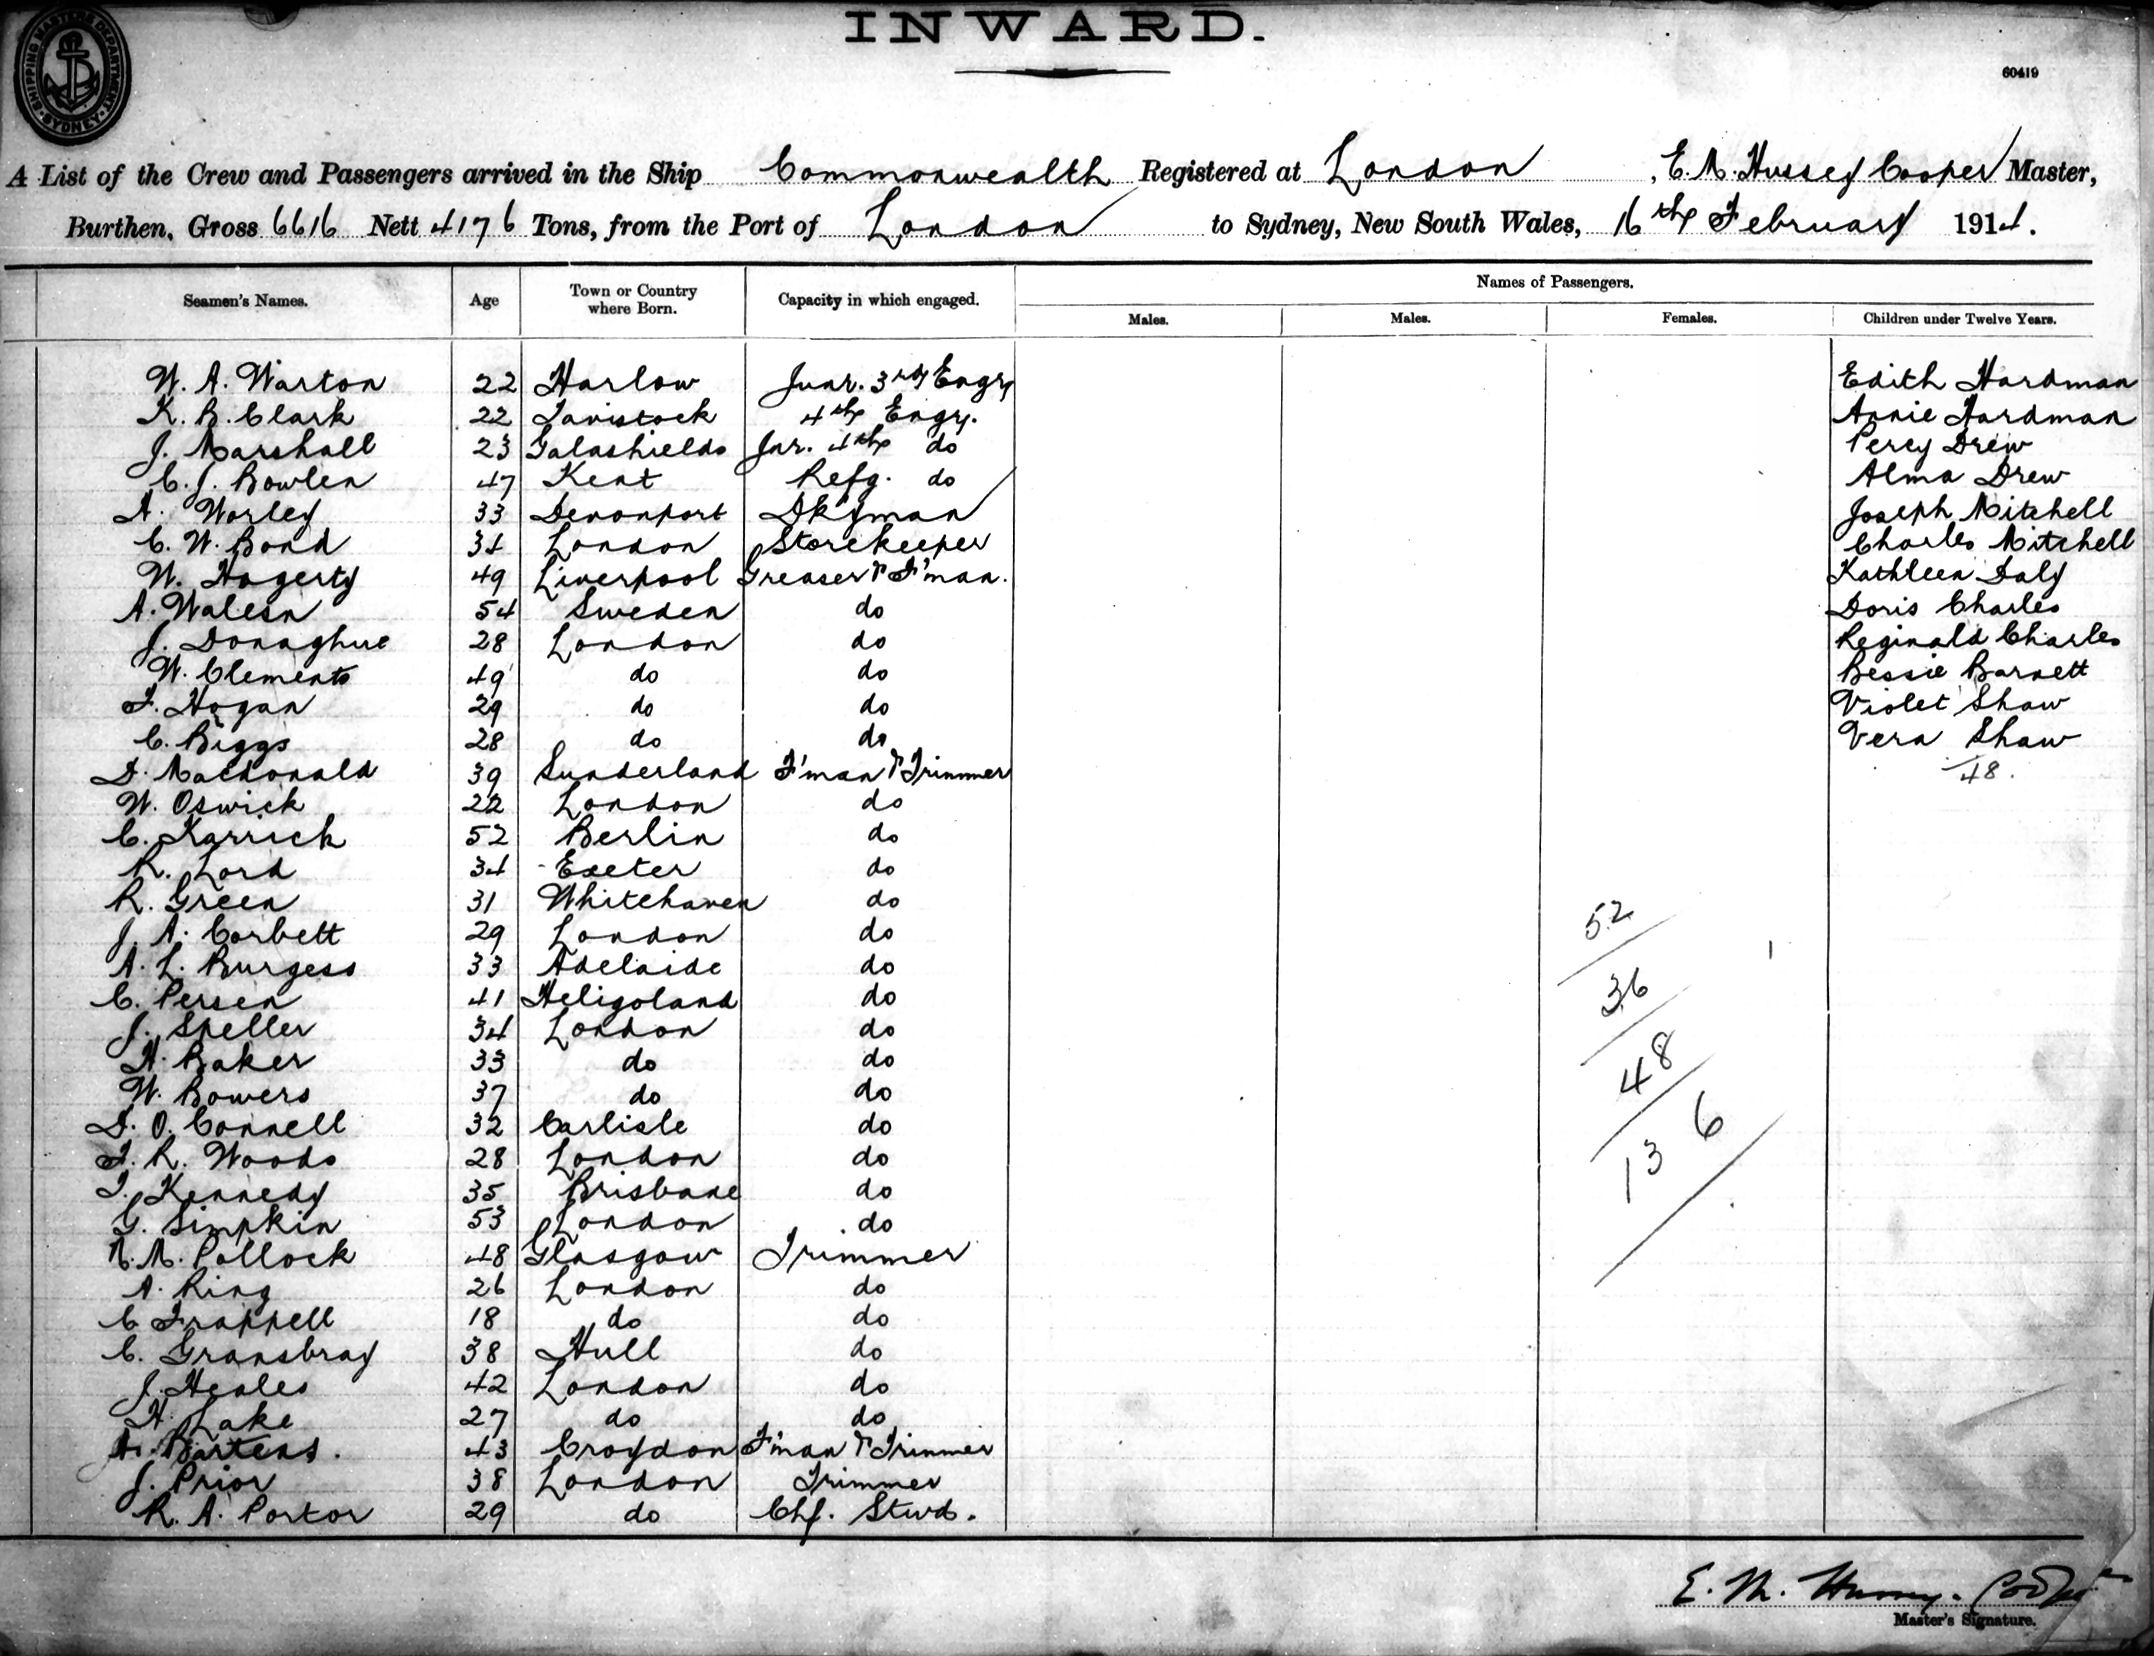 INWARD.
SHIPPING MASTERS DEPARTMENT
SYDNEY
60419
A List of the Crew and Passengers arrived in the Ship Commonwealth Registered at London, E. M. Hussey Cooper Master,
Burthen, Gross 6616 Nett 4176 Tons, from the Port of London to Sydney, New South Wales, 16th February 1914.
Names of Passengers.
Seamen's Names. Age Town or Country where Born. Capacity in which engaged. Males. Males. Females. Children under Twelve Years.
W. A. Warton 22 Harlow Junr. 3rd Engr. Edith Hardman
K. B. Clark 22 Tavistock 4th Engr. Annie Hardman
J. Marshall 23 Galashields Jnr. 4th do Percy Drew
C. J. Bowlen 47 Kent Refg. do Alma Drew
A. Worley 33 Devonport Dkyman Joseph Mitchell
C. W. Bond 34 London Storekeeper Charles Mitchell
W. Hagerty 49 Liverpool Greaser & F'man. Kathleen Daly
A. Walesn 54 Sweden do Doris Charles
J. Donaghue 28 London do Reginald Charles
W. Clements 49 do do Bessie Barnett
F. Hogan 29 do do Violet Shaw
C. Biggs 28 do do Vera Shaw
D. Macdonald 39 Sunderland F'man & Trimmer 48.
W. Oswick 22 London do
C. Karrick 52 Berlin do
R. Lord 34 Exeter do
R. Green 31 Whitehaven do
J. A. Corbett 29 London do
A. L. Burgess 33 Adelaide do
C. Persen 41 Heligoland do
J. Speller 34 London do
H. Baker 33 do do
W. Bowers 37 do do
D. O. Connell 32 Carlisle do
T. R. Woods 28 London do
T. Kennedy 35 Brisbane do
G. Simpkin 53 London do
R. M. Pollock 48 Glasgow Trimmer
A. Ring 26 London do
C Trappell 18 do do
C. Gransbray 38 Hull do
J. Heales 42 London do
H. Lake 27 do do
A. Bartens. 43 Croydon F'man & Trimmer
J. Prior 38 London Trimmer
R. A. Portor 29 do Chf. Stwd.
52
36
48
136
E. M. Hussey. Cooper
Master's Signature.